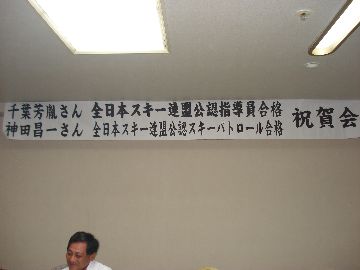 千葉芳胤さん 全日本スキー連盟公認指導員合格
神田昌一さん 全日本スキー連盟公認スキーパトロール合格
祝賀会